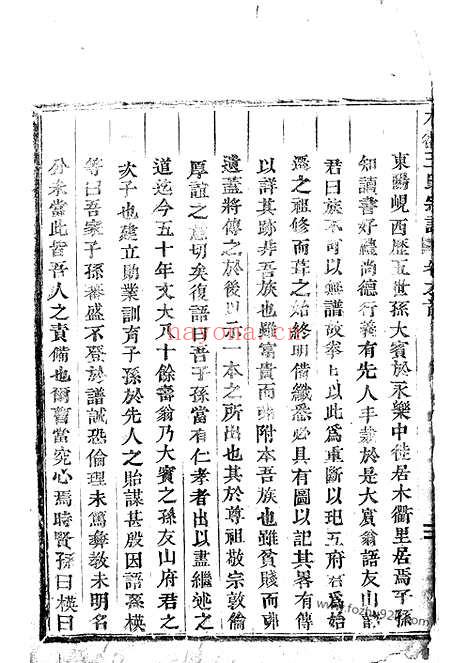 東陽峴西歷五世孫大賓於永樂中徙居木衢里居焉子孫
知讀書好禮尚德行義有先人丰裁於是大賓翁語友山
君曰族不可以無譜故拳上以此爲重斷以玘五府君爲始
遷之祖修而葺之始終明備纖悉必具有圖以記其畧有傳
以詳其跡非吾族也雖富貴而弗附本吾族也雖貧賤而弗
遺蓋將傳之於後以示一本之所出也其於尊祖敬宗敦倫
厚誼之意切矣復語曰吾子孫當有仁孝者出以盡繼述之
道迄今五十年文大乃十餘翁乃大賓之孫友山府君之
次子也建立勛業訓育子孫於先人之貽謀甚殷因語孫模
等曰吾家子孫蕃盛不登於譜誠恐倫理未篤彝教未明名
分未當此皆吾人之責備也爾曹當究心焉時賢孫曰模曰
氏宗譜 卷之首
hayona.com
www.foz